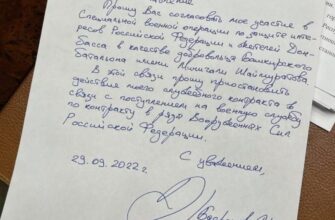 Прошу Вас согласовать мое участие в
Специальной военной операции по защите инте-
ресов Российской Федерации и жителей Дон-
басса в качестве добровольца Башкирского
батальона имени Минигали Шаймуратова.
В этой связи прошу приостановить
действие моего служебного контракта в
связи с поступлением на военную службу
по контракту в ряды Вооруженных Сил
Российской Федерации.
29.09.2022г.
С уважением,